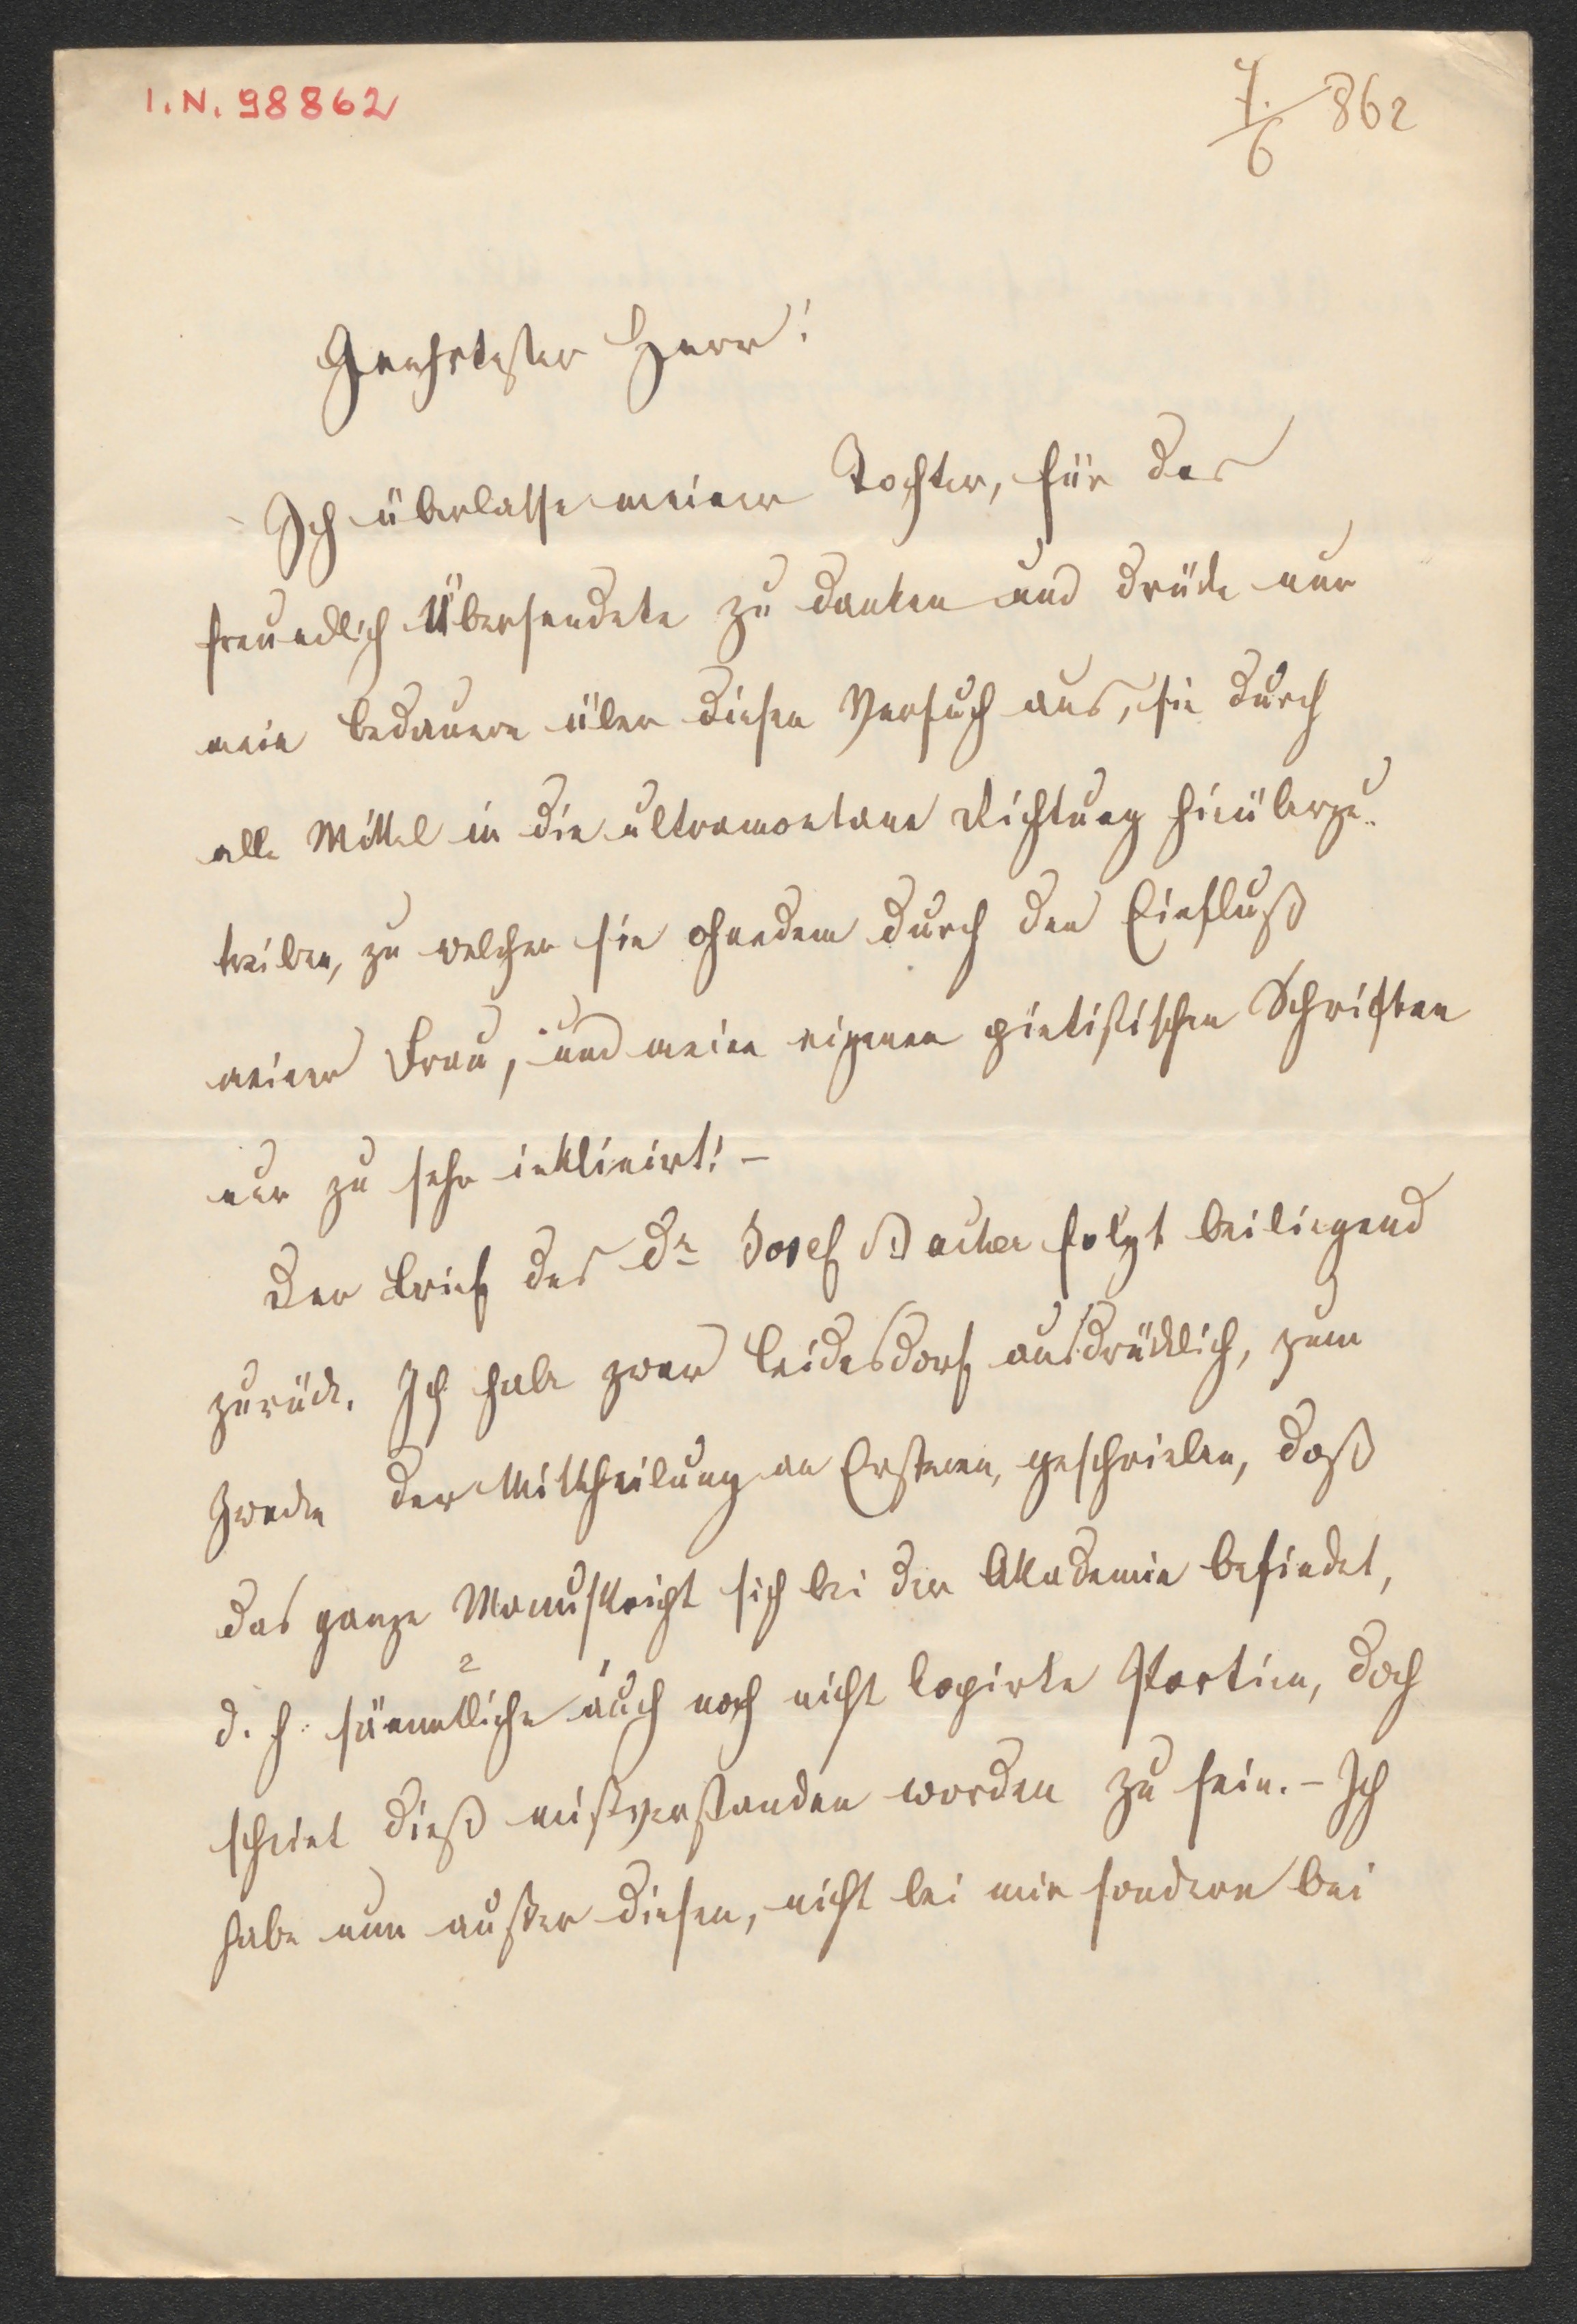 I.N. 98862
7./6 862
Geehrtester Herr!
Ich überlasse meiner Tochter, für das
freundlich Übersendete zu danken und drücke nur
mein Bedauern über diesen Versuch aus, sie durch
alle Mittel in die ultramontane Richtung hinüberzu-
treiben, zu welcher sie ohnedem durch den Einfluß
meiner Frau, und meine eigenen pietistischen Schriften
nur zu sehr inklinirt! –
Der Brief des Dr Josef folgt beiliegend
zurück. Ich habe zwar Leidesdorf ausdrücklich, zum
Zwecke der Mittheilung an Ersteren, geschrieben, daß
das ganze Manuskript sich bei der Akademie befindet,
d. h. sämmtliche auch noch nicht kopirte Partien, doch
scheint dieß mißverstanden worden zu sein. – Ich
habe nun außer diesen, nicht bei mir sondern bei